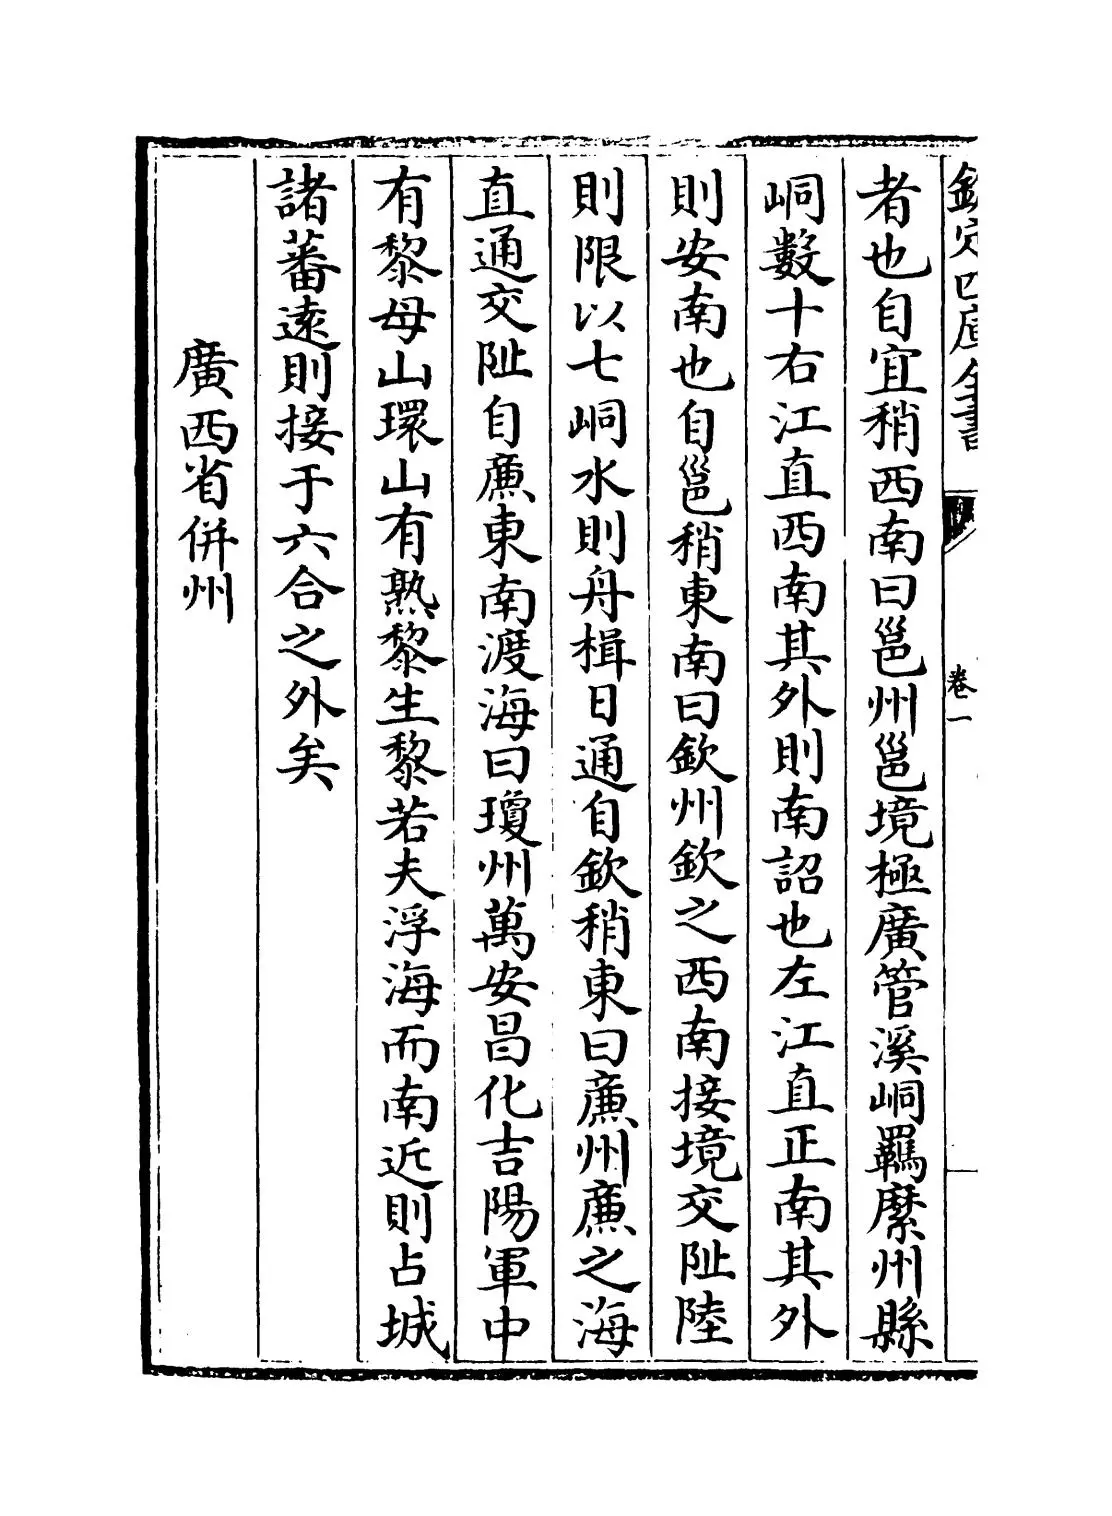 欽定四庫全書
卷一
者也自宜稍西南曰邕州邕境極廣管溪峒羈縻州縣
峒數十右江直西南其外則南詔也左江直正南其外
則安南也自邕稍東南曰欽州欽之西南接境交趾陸
則限以七峒水則舟楫日通自欽稍東曰廉州廉之海
直通交趾自廉東南渡海曰瓊州萬安昌化吉陽軍中
有黎母山環山有熟黎生黎若夫浮海而南近則占城
諸蕃遠則接于六合之外矣
廣西省併州